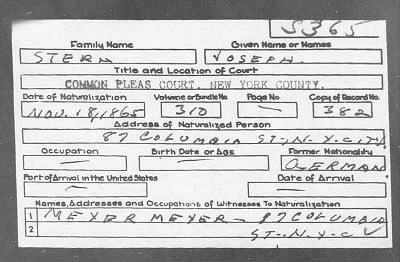 S365
Family Name Given Name or Names
STERN JOSEPH.
Title and Location of Court
COMMON PLEAS COURT, NEW YORK COUNTY.
Date of Naturalization Volume or Bundle No. Page No. Copy of Record No.
NOV. 18, 1865 310 — 382
Address of Naturalized Person
87 COLUMBIA ST-.N-Y-CITY
Occupation Birth Date or Age Former Nationality
— — GERMAN
Port of Arrival in the United States Date of Arrival
— —
Names, Addresses and Occupations of Witnesses To Naturalization
1 MEYER MEYER - 87 COLUMBIA
2 ST-.N-Y-C